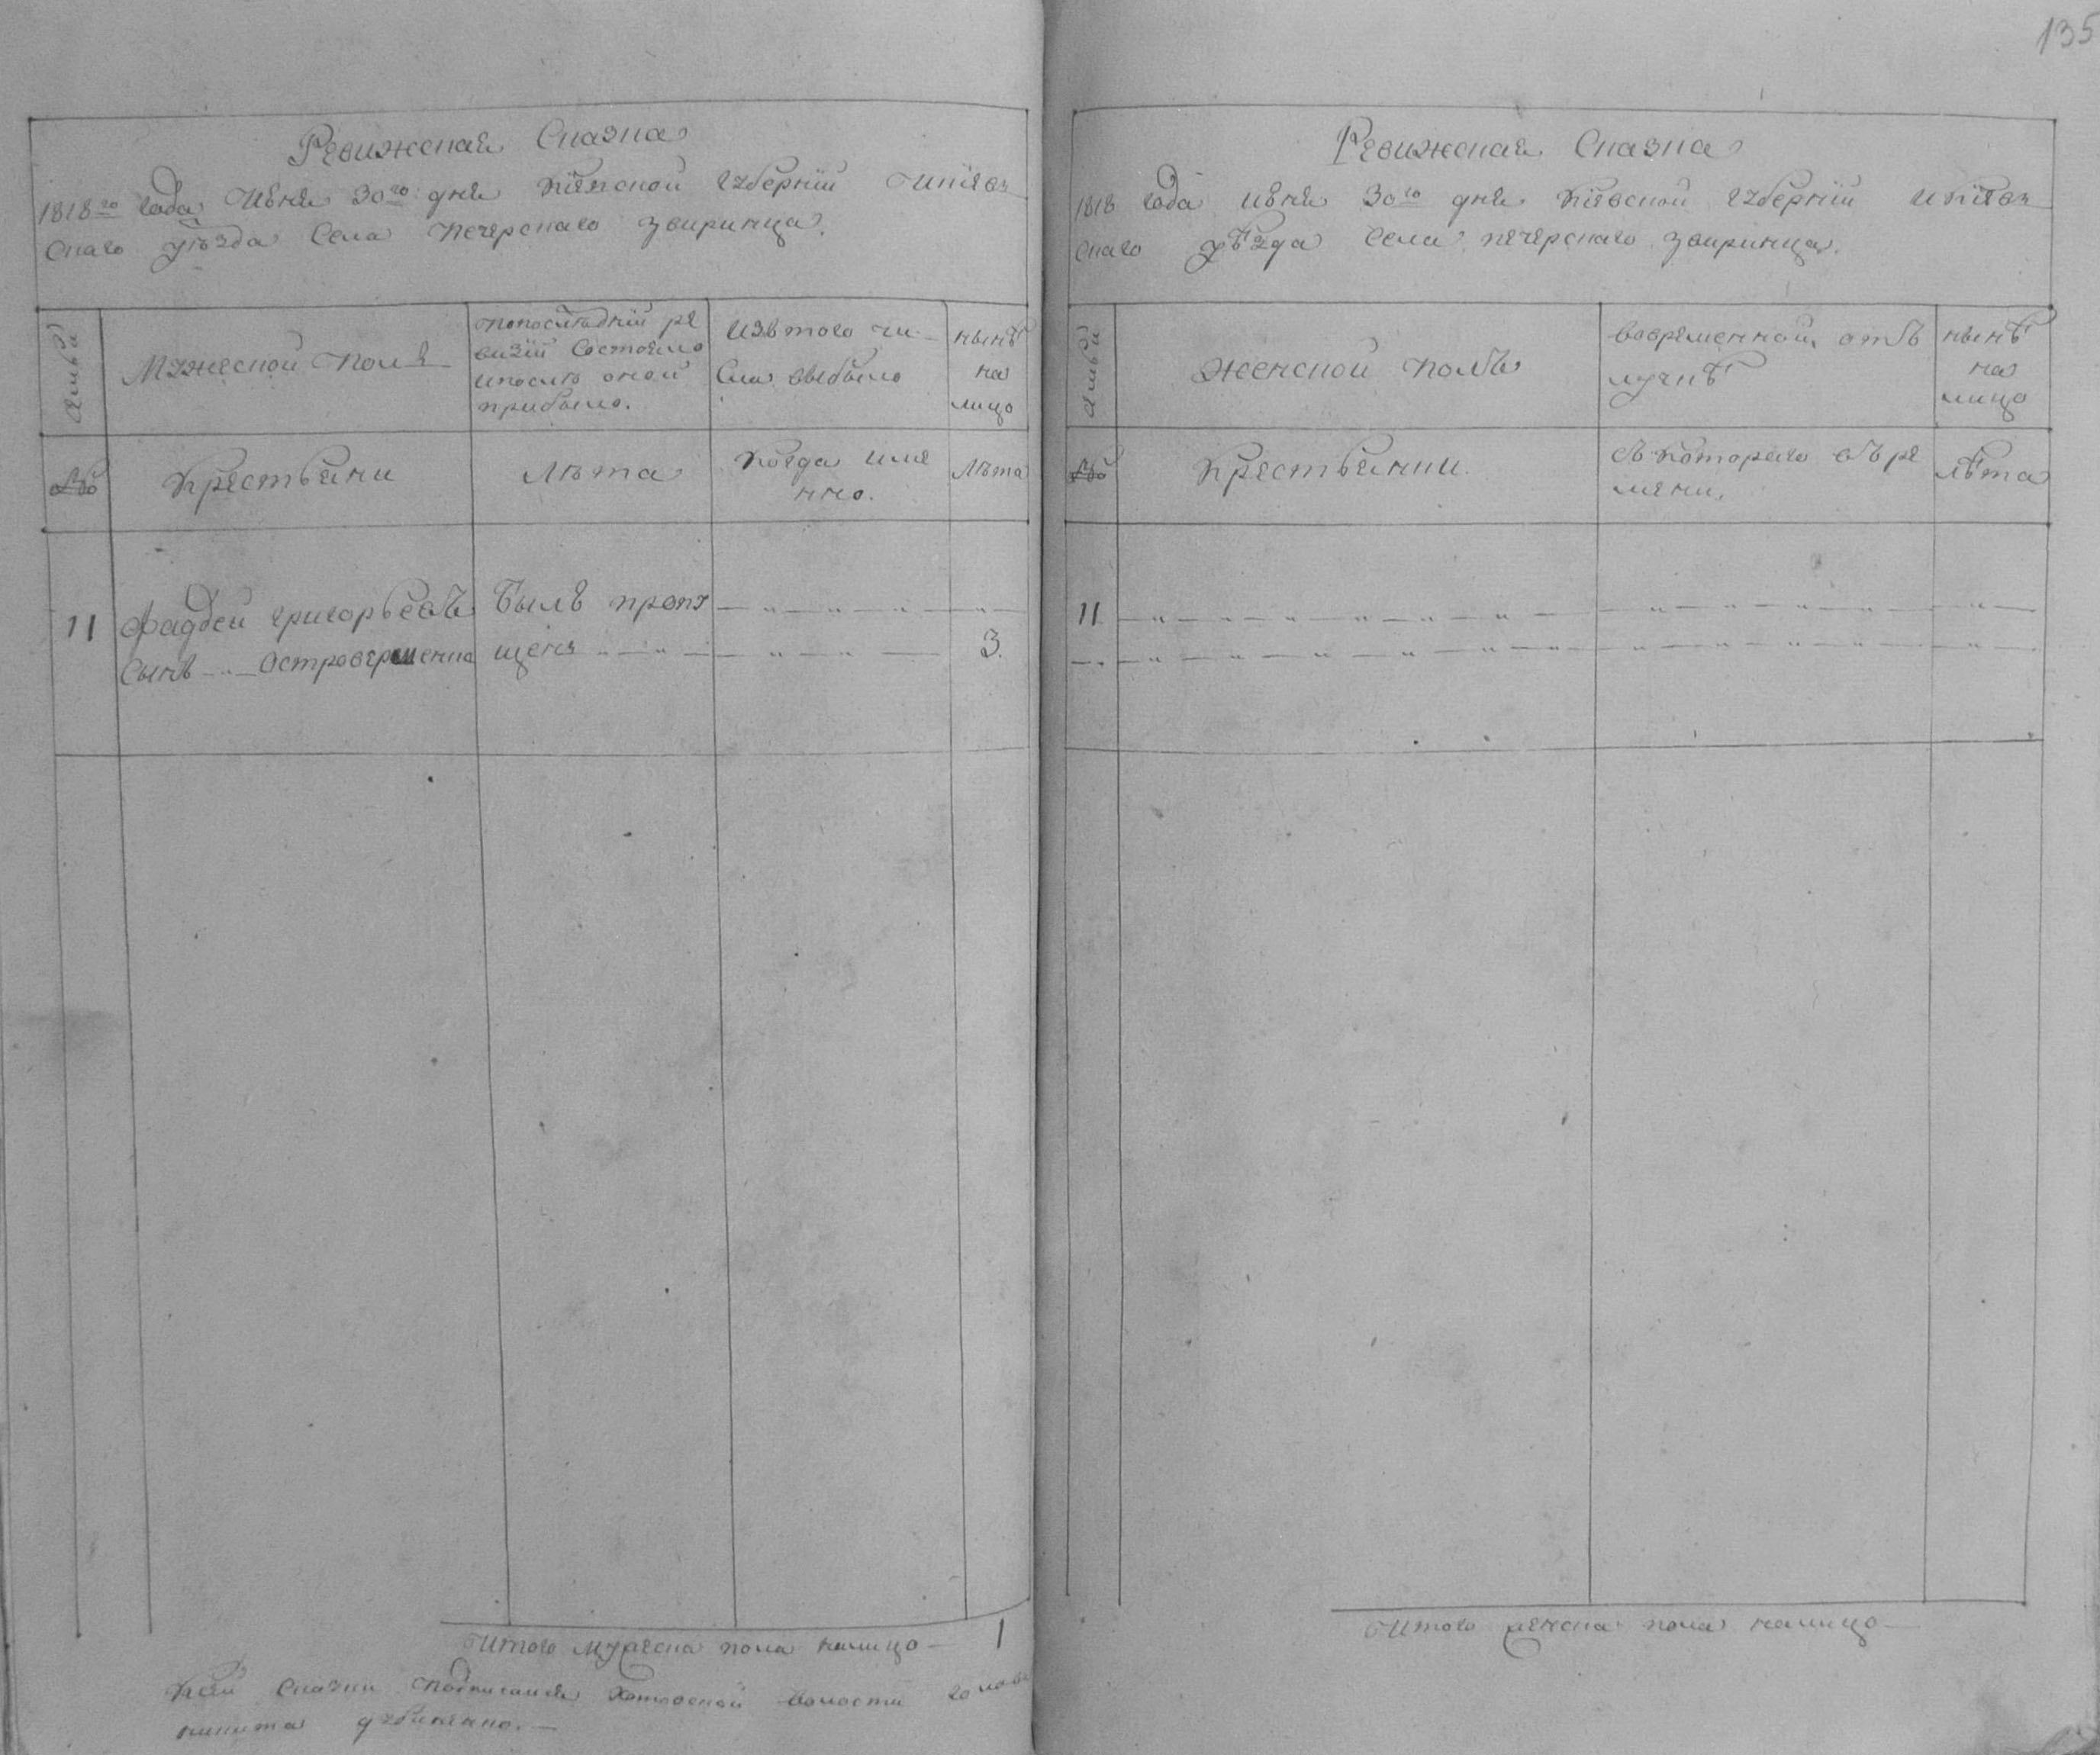 135
Ревижская Сказка
1818го года Июня 30го дня Кіевской губерніи Икіев
скаго уѣзда Села Печерскаго звиринца.
Семьи
Мужеской Полъ
Попослѣдній ре
визіи Состояло
ипослѣ оной
прибыло.
Изъ того чи-
сла выбыло
нынѣ
на
лицо
Крестьяни
Лѣта
Когда име
нно.
Лѣта
11
Фадѣй григорьевъ
Сынъ Островершенко
былъ пропу
щенъ
3.
Итого мужеска пола налицо — 1
Ксей Сказки Подписался Хотовской волости голова
никита
Ревижская Сказка
1818 года июня 30го дня Кіевской губерніи икіев
скаго уѣзда Села печерскаго звиринца.
Семьи
Женской полъ
вовременной отъ
лучкѣ
нынѣ
на
лицо
Крестьянки.
съ котораго вьре
мени.
лѣта
11
Итого женска пола налицо —